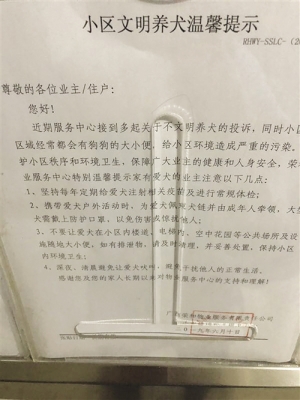 小区文明养犬温馨提示
RHWY-SSLC-(20
尊敬的各位业主/住户：
您好！
近期服务中心接到多起关于不文明养犬的投诉，同时小区
区域经常都会有狗狗的大小便，给小区环境造成严重的污染。
护小区秩序和环境卫生，保障广大业主的健康和人身安全，荣
业服务中心特别温馨提示家有爱犬的业主注意以下几点：
1、坚持每年定期给爱犬注射相关疫苗及进行常规体检；
2、携带爱犬户外活动时，为爱犬佩死犬链并由成年人牵领，大
犬需戴上防护口罩，以免伤害或惊扰他人；
3、不要让爱犬在小区内楼道、电梯内、空中花园等公共场所及设
施随地大小便，如有排泄物，请及时清理，并妥善处置，保持小区
内环境卫生；
4、深夜、清晨避免让爱犬吠叫，避免干扰他人的正常生活。
感谢您及您的家人长期以来对物业服务中心的支持和理解！
年六月十日